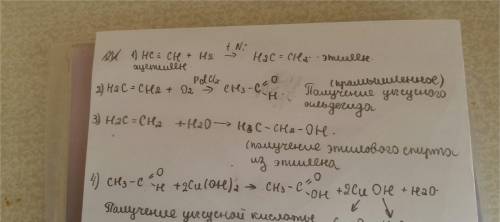 t Ni
1) HC ≡ CH + H2 → H2C = CH2 - этилен
ацетилен
PdCl2 O (промышленное)
2) H2C = CH2 + O2 → CH3 - C H Получение уксусного
альдегида
3) H2C = CH2 + H2O → H3C - CH2 - OH.
(получение этилового спирта
из этилена
4) CH3 - C O H + 2Cu(OH)2 → CH3 - C O OH + 2Cu OH + H2O
Получение уксусной кислоты